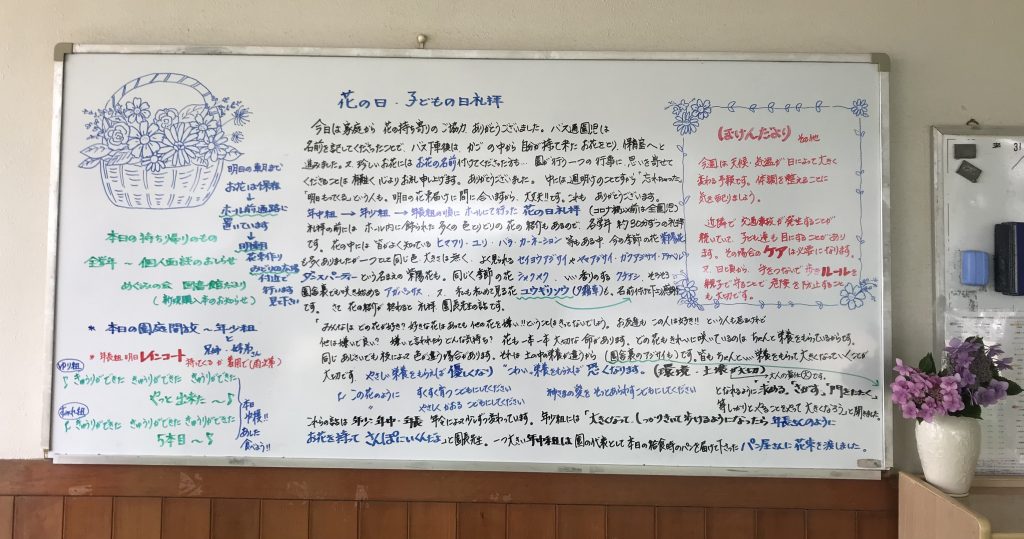 花の日・子どもの日礼拝
今日は家庭から 花の持ち寄りのご協力 ありがとうございました。バス通園児は
名前を記してくださったことで、バス下車後は、カゴの中から 自分が持って来たお花をとり 保育室へと
進みました。又、珍しいお花には お花の名前付けてくださった方も… 園が行う一つの行事に、思いを寄せて
くださることは 心よりお礼申し上げます。ありがとうございました。中には週明けのことですから“忘れちゃった。
明日もってくる”という人も。明日の花束届けに間に合いますから、大丈夫!!です。これも ありがとうございます。
年中組 → 年少組 → 年長組の順に ホールにて行った 花の日礼拝 (コロナ禍以前は全園児)
礼拝の前には ホール内に飾られた多くの色とりどりの花の紹介もあるので、各学年 約30分ずつの礼拝
です。花の中には 皆がよく知っている ヒマワリ・ユリ・バラ・カーネーション
も多くありましたが一つとて同じ色、大きさは無く、よく見られる セイヨウアジサイ・ヤマアジサイ・ガクアジサイ・アナベル
ダンスパーティーという名まえの紫陽花も。同じく季節の花
園舎裏でも咲き始める アガパンサス
です。さて 花の紹介が終わると 礼拝 園長先生の話です。
「みんなは どの花が好き? 好きな花はあっても 他の花を嫌い!!ということはきっとないでしょう。お友達も この人は好き!! という人も居るけれど
他は嫌いで良い? 嫌いと言われたらどんな気持ち? 花も一本一本 大切な命があります。どの花もきれいに咲いているのは ちゃんと栄養をもらっているからです。
同じあじさいでも 枝によって 色が違う場合があります。それは 土の中の栄養が違うから (園舎裏のアジサイも)です。皆もちゃんといい栄養をもらって大きくなっていくことが
大切です。やさしい栄養をもらえば 優しくなり “こわい”栄養をもらえば 恐くなります。(環境・土壌が大切)
♪ この花のように すくすく育つこどもにしてください
やさしくかおる こどもにしてください
神さまの愛を そっとあらわす こどもにしてください
これらの話は 年少・年中・年長 年令により少しずつ変わっています。年少組には「大きくなって、しっかり手をつないで歩けるようになったら 年長さんのように
お花を持って さんぽにいくんだよ」と園長先生。一つ大きい年中組は 園の代表として 本日の給食時のパンを届けて下さった パン屋さんに 花束を渡しました。
明日の朝まで
お花は保管
↓
ホール前通路に
置いています
↓
明朝
花束作り
付近で
行います
見て下さい
本日の持ち帰りのもの
全学年 ~ 個人面談のおしらせ
めぐみの会 図書館だより
(新規購入本のおしらせ)
* 本日の園庭開放 ~ 年少組
と
兄姉・弟妹さん
* 年長組 明日 レインコート
持ってくるか 着用で(雨天時)
ゆり組
♪ きゅうりができた きゅうりができた きゅうりができた
やっと出来た~♪
きゅうりができた きゅうりができた きゅうりができた
5本目~♪
本日
収穫!!
あした
食べよう!!
ほけんだより
今週は 天候・気温が日によって大きく
変わる予報です。体調を整えることに
気を配りましょう。
近隣で 交通事故が発生することが
続いていて、子ども達も目にすることがあり
ます。その場合の ケア は必要になります。
又、日頃から、手をつないで歩くルールを
親子で守ることで 危険を防止することも
大切です。